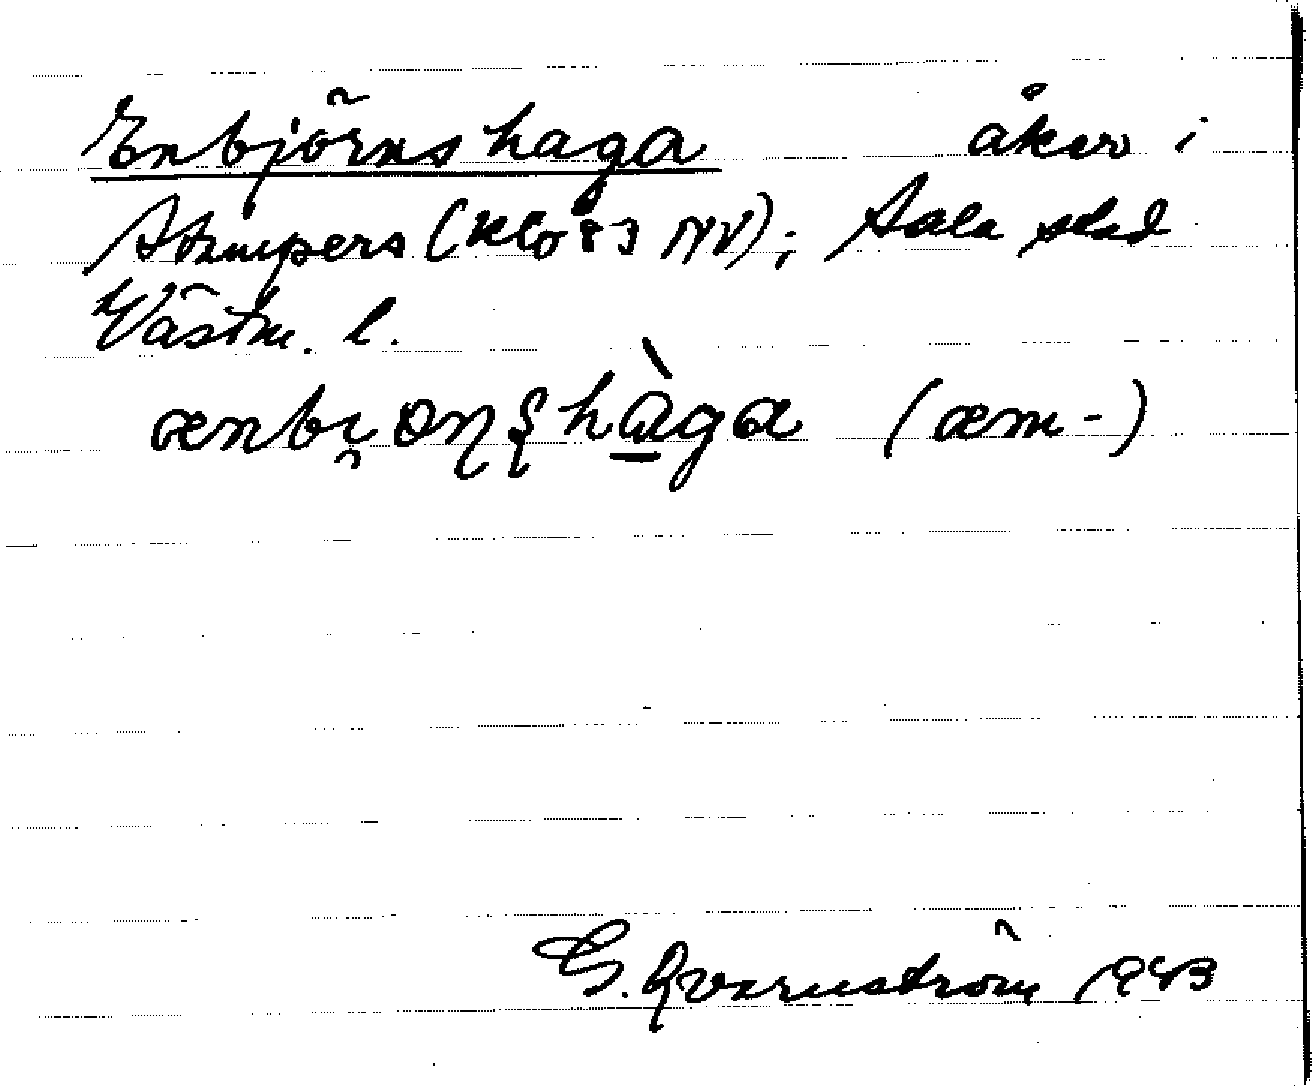 Enbjörnshaga åker i
Stampers (Klo 83 NV); Sala stad
Västm. l.
ænbi̯ɷɳʂhàga (æm-)
G. Qvarnström 1943